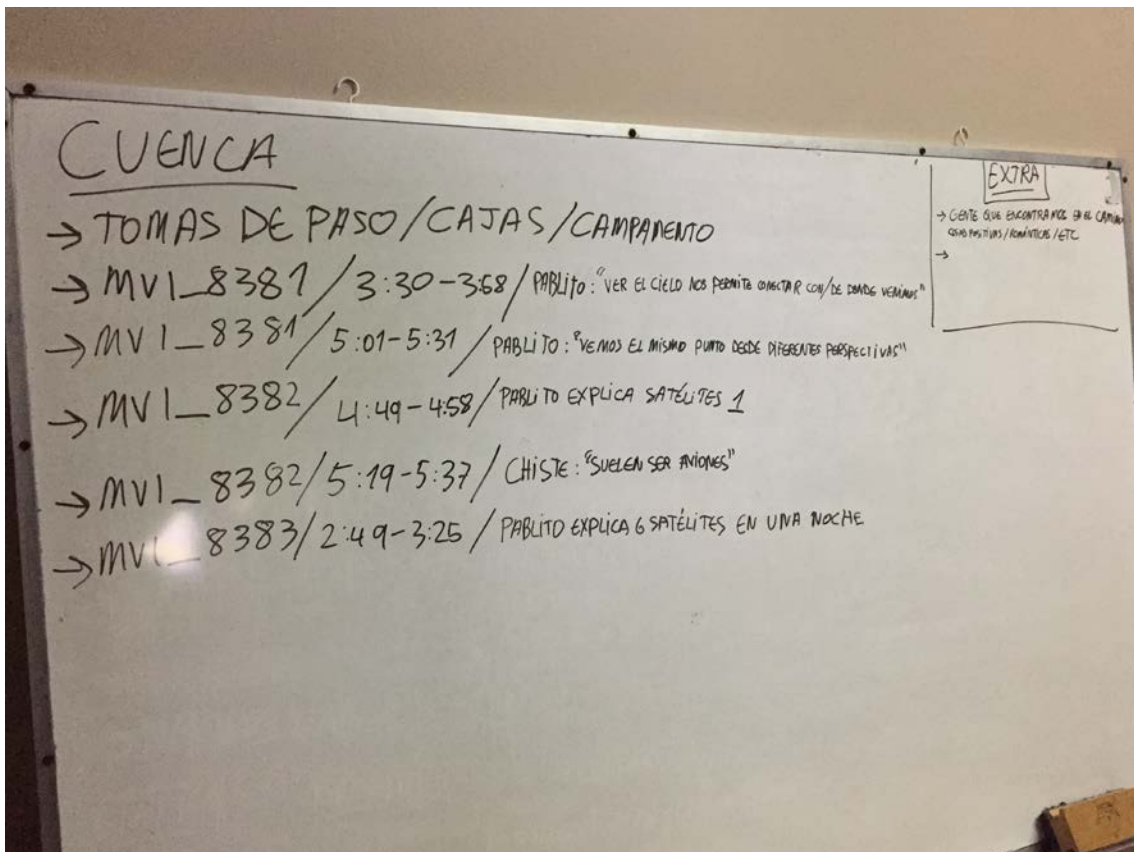 CUENCA
→ TOMAS DE PASO/CAJAS/CAMPAMENTO
→ MVI_8381/3:30-3:58/PABLITO: "VER EL CIELO NOS PERMITE CONECTAR CON/DE DONDE VENIMOS"
→ MVI_8381/5:01-5:31/PABLITO: "VEMOS EL MISMO PUNTO DESDE DIFERENTES PERSPECTIVAS"
→ MVI_8382/4:49-4:58/PABLITO EXPLICA SATÉLITES 1
→ MVI_8382/5:19-5:37/CHISTE: "SUELEN SER AVIONES"
→ MVI_8383/2:49-3:25/PABLITO EXPLICA 6 SATÉLITES EN UNA NOCHE
EXTRA
→ GENTE QUE ENCONTRAMOS EN EL CAMINO
COSAS POSITIVAS/ROMÁNTICAS/ETC
→